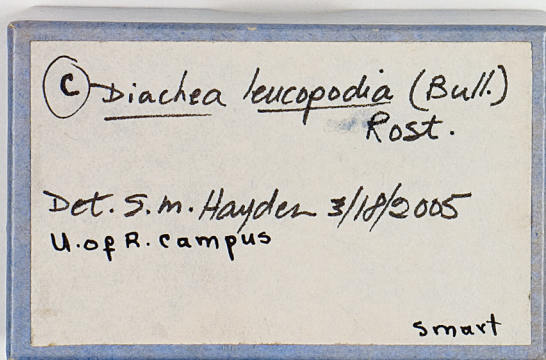 C Diachea leucopodia (Bull.)
Rost.
Det. S.M. Hayden 3/18/2005
U. of R. campus
Smart